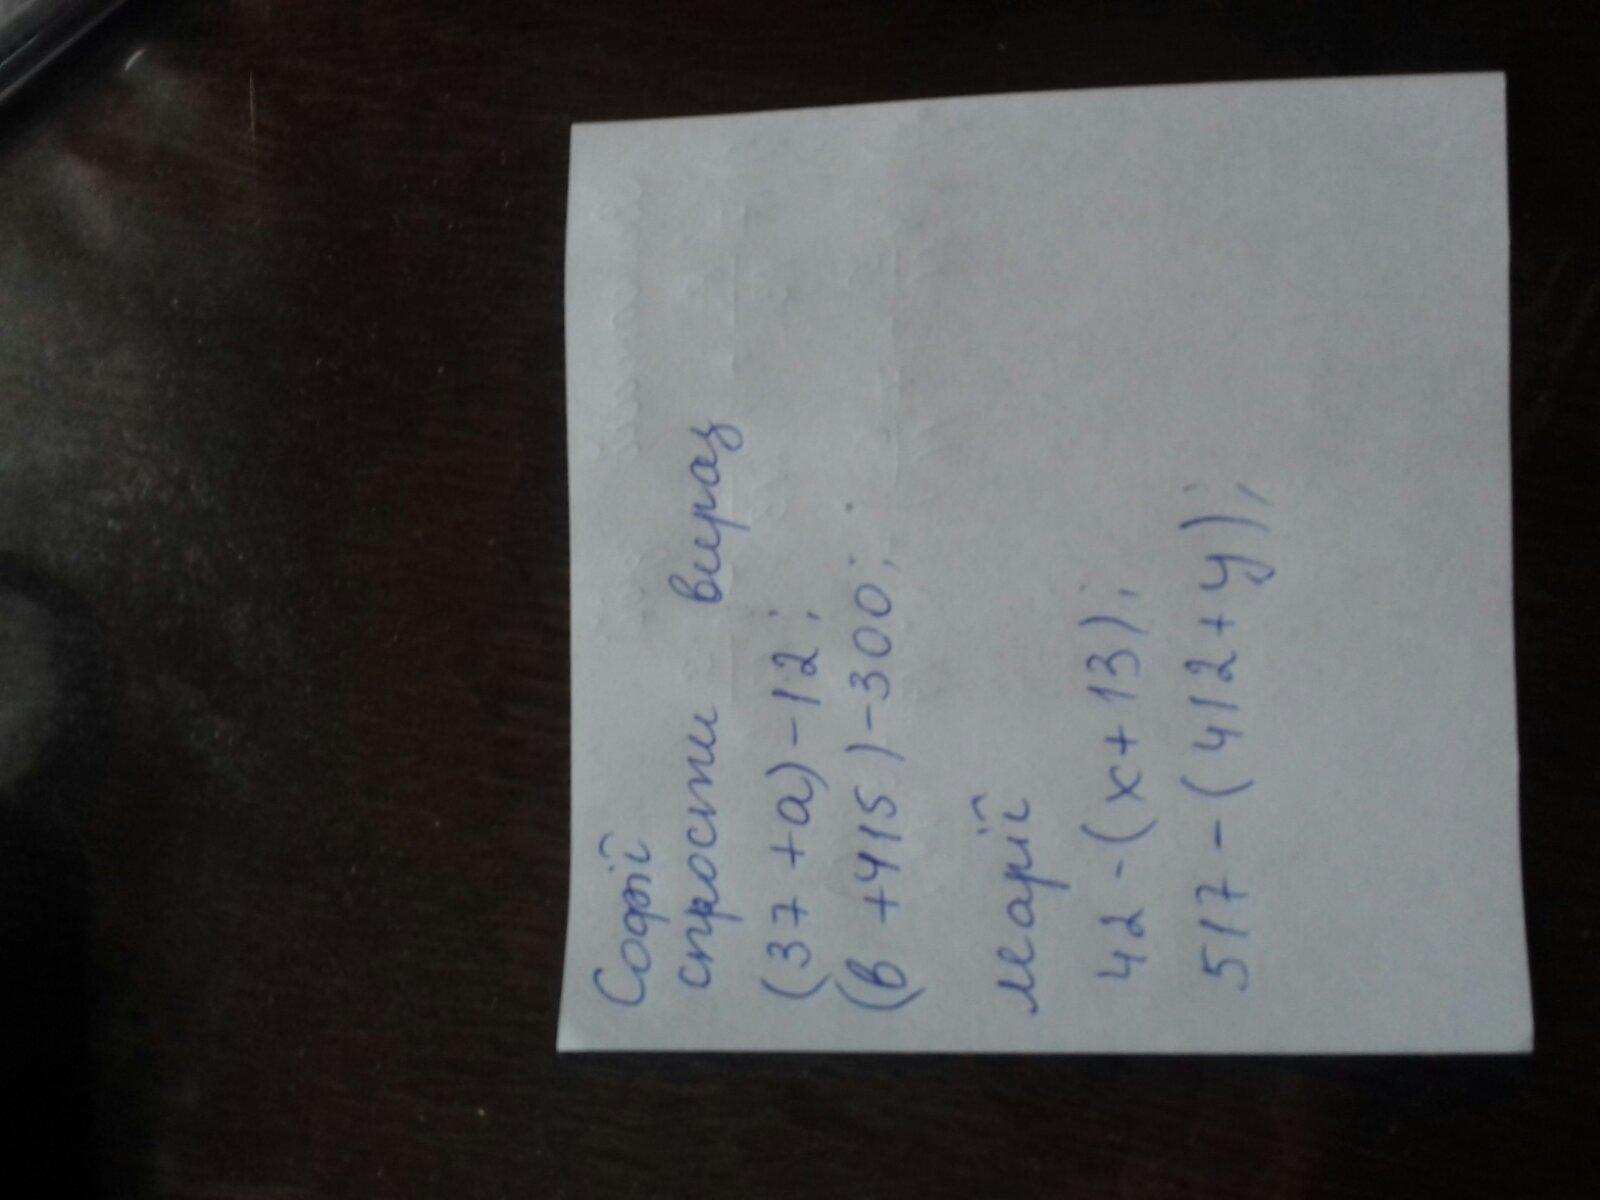 Софії
спрости вираз
(37 + а) - 12;
(в + 415) - 300;
марії
42 - (х + 13);
517 - (412 + у);